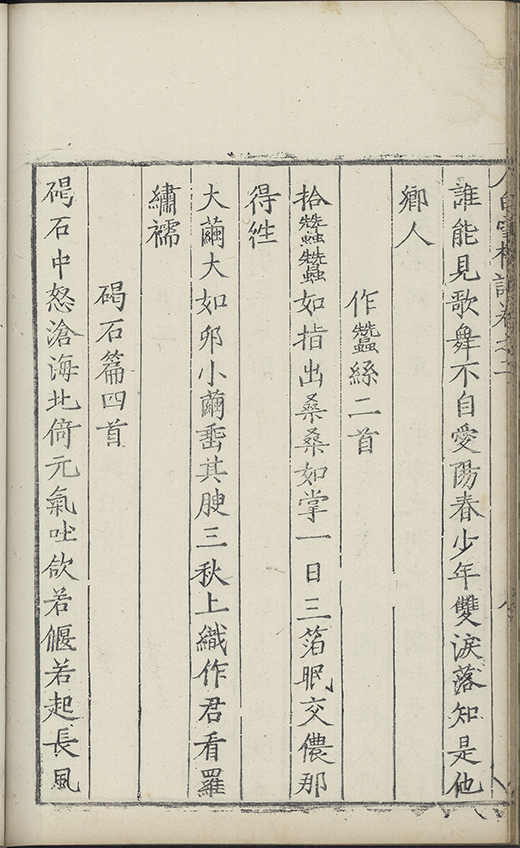 誰能見歌舞不自愛陽春少年雙淚落知是他
鄉人
作蠶絲二首
拾蠶蠶如指出桑桑如掌一日三箔眠交儂那
得徃
大繭大如卵小繭
其腴三秋上織作君看羅
繡襦
碣石篇四首
碣石中怒滄海北倚元氣吐欱若偃若起長風